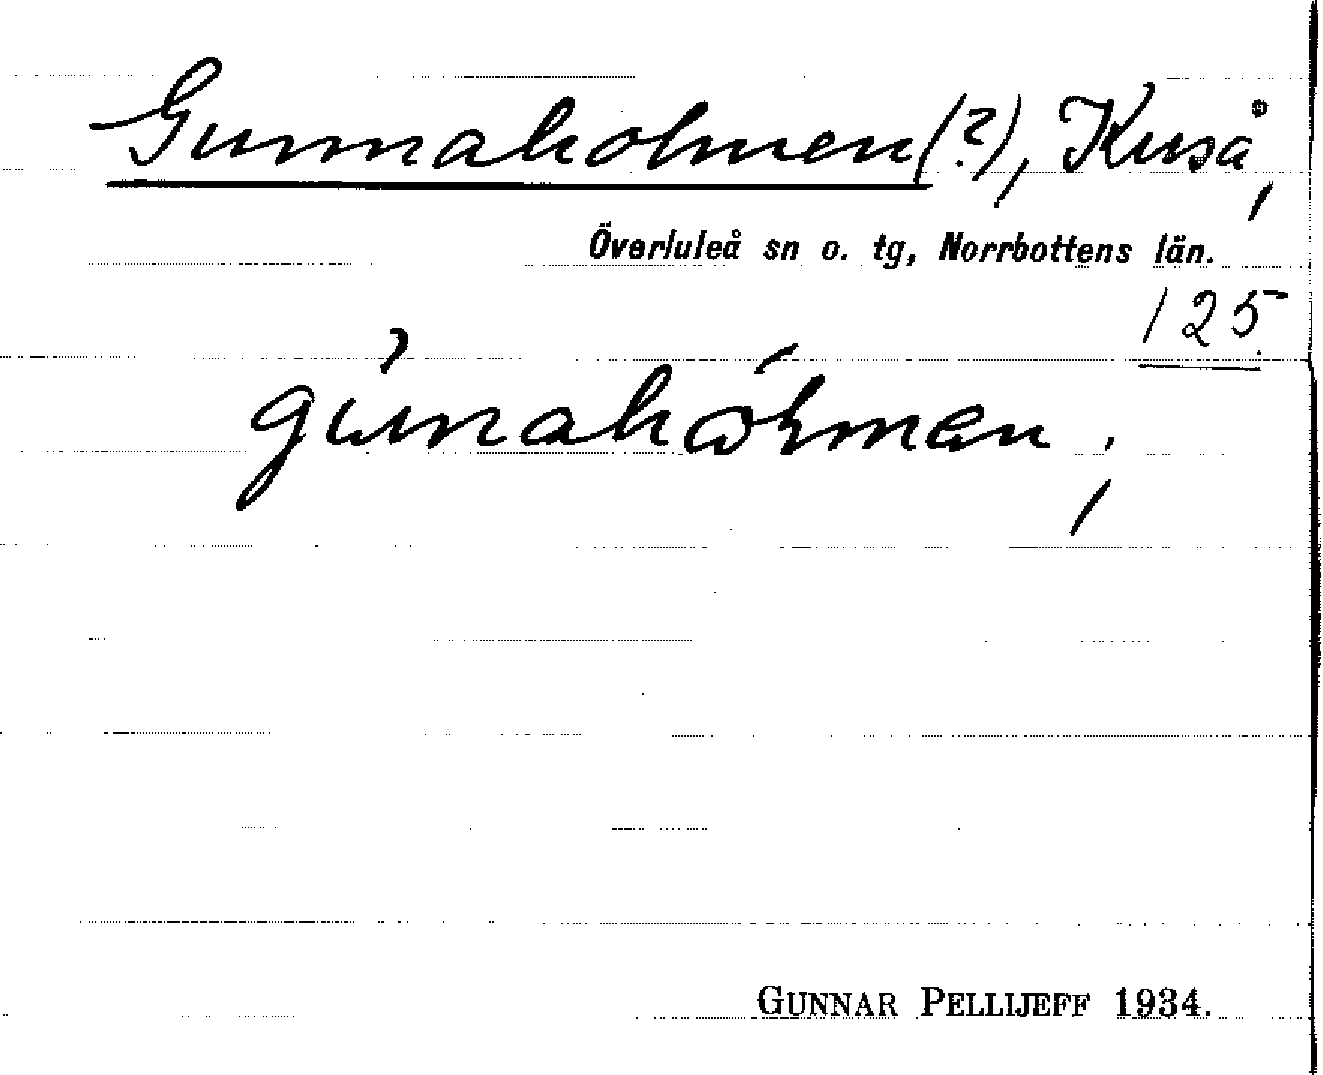 Gunnaholmen(?), Kuså,
Överluleå sn o. tg, Norrbottens län.
125
GUNNAR PELLIJEFF 1934.